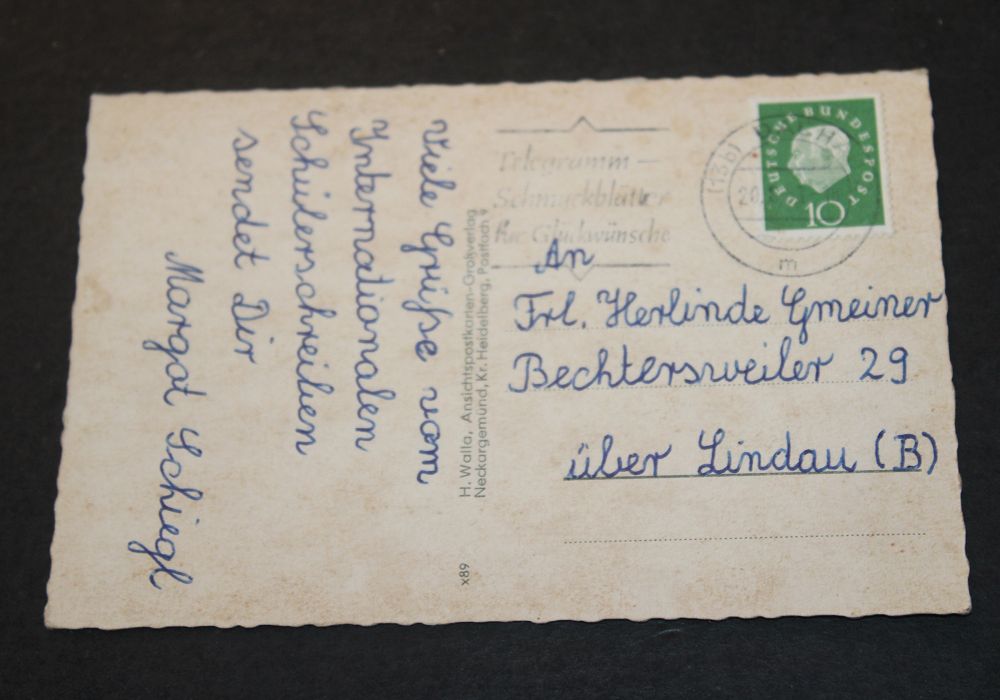 Viele Grüße vom
Internationalen
Schülerschreiben
sendet Dir
Margot Schiegl
H. Walla, Ansichtspostkarten-Großverlag
Neckargemünd, Kr. Heidelberg, Postfach 9
x89
Telegramm-
Schmuckblätter
für Glückwünsche
(13b)
20
m
DEUTSCHE BUNDESPOST
10
An
Frl. Herlinde Gmeiner
Bechtersweiler 29
über Lindau (B)